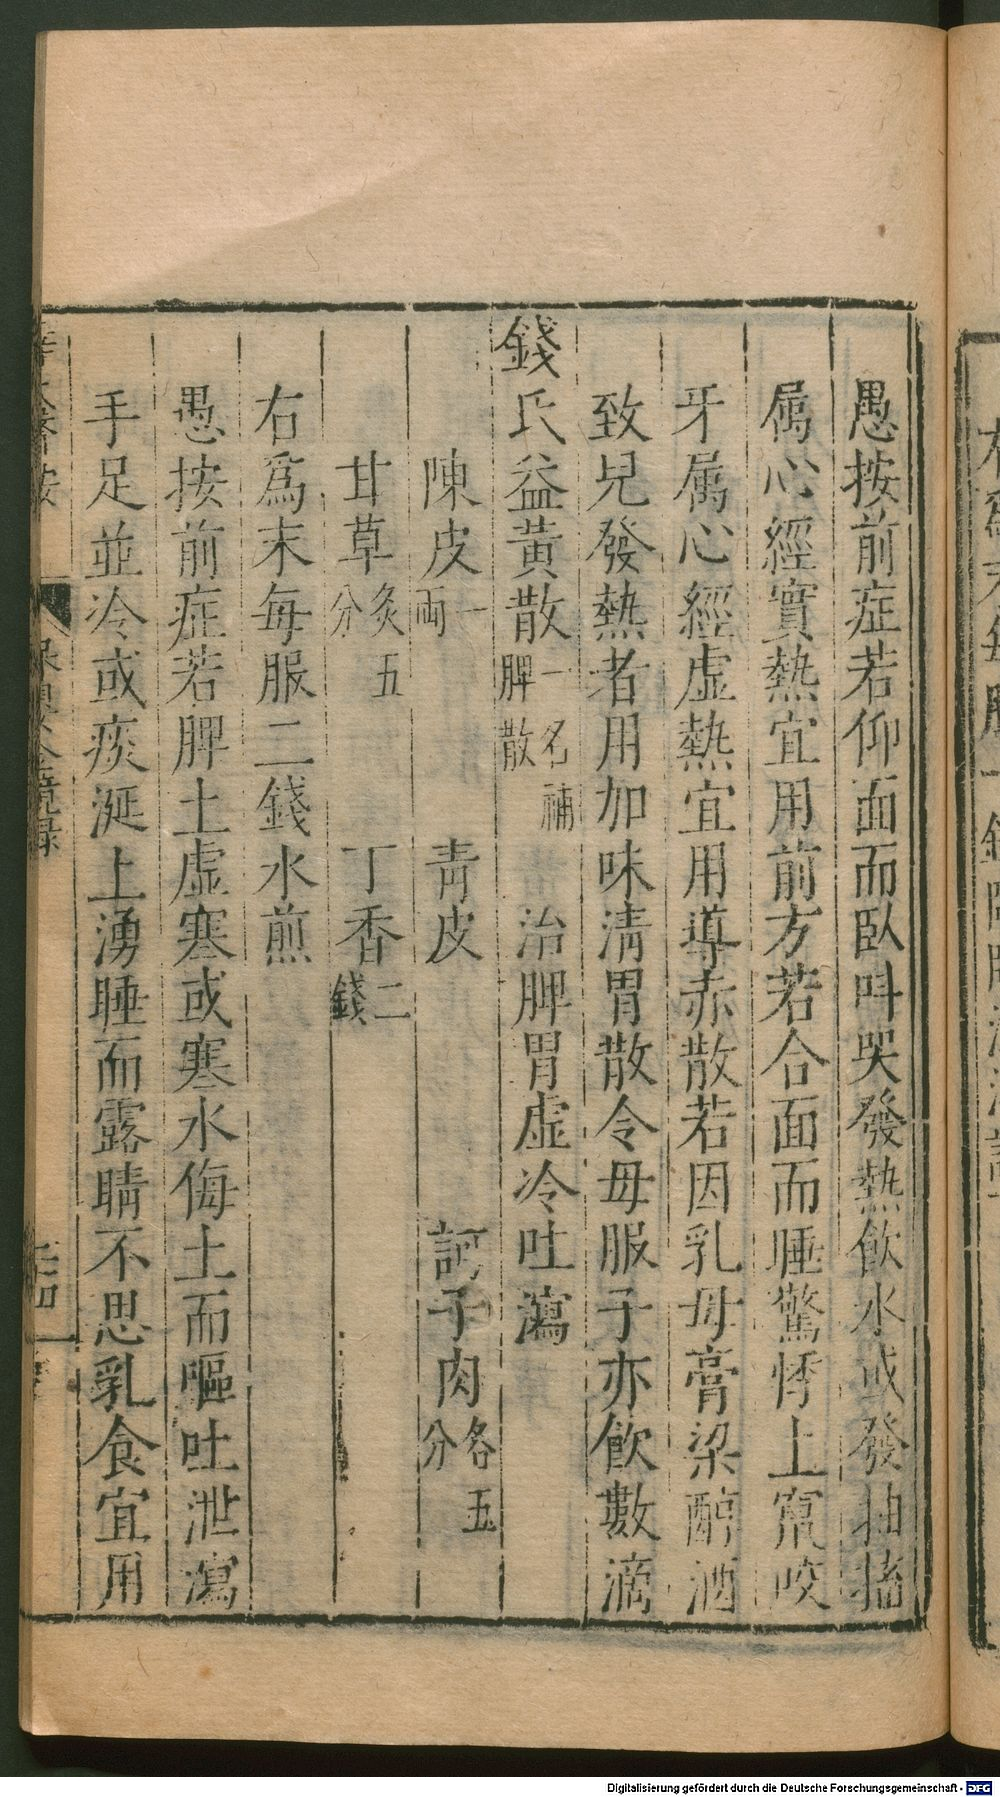 愚按前症若仰面而臥呌哭發熱飲水或發抽搐
属心經實熱宜用前方若合面而睡驚悸上竄咬
牙属心經虛熱宜用導赤散若因乳母膏梁醇酒
致兒發熱者用加味清胃散令母服子亦飲數滴
錢氏益黃散一名補脾散 治脾胃虛冷吐瀉
陳皮一兩 青皮 訶子肉各五分
甘草炙五分 丁香二錢
右爲末每服二錢水煎
愚按前症若脾土虛寒或寒水侮土而嘔吐泄瀉
手足並冷或痰涎上湧睡而露睛不思乳食宜用
保嬰金鏡録
Digitalisierung gefördert durch die Deutsche Forschungsgemeinschaft - DFG